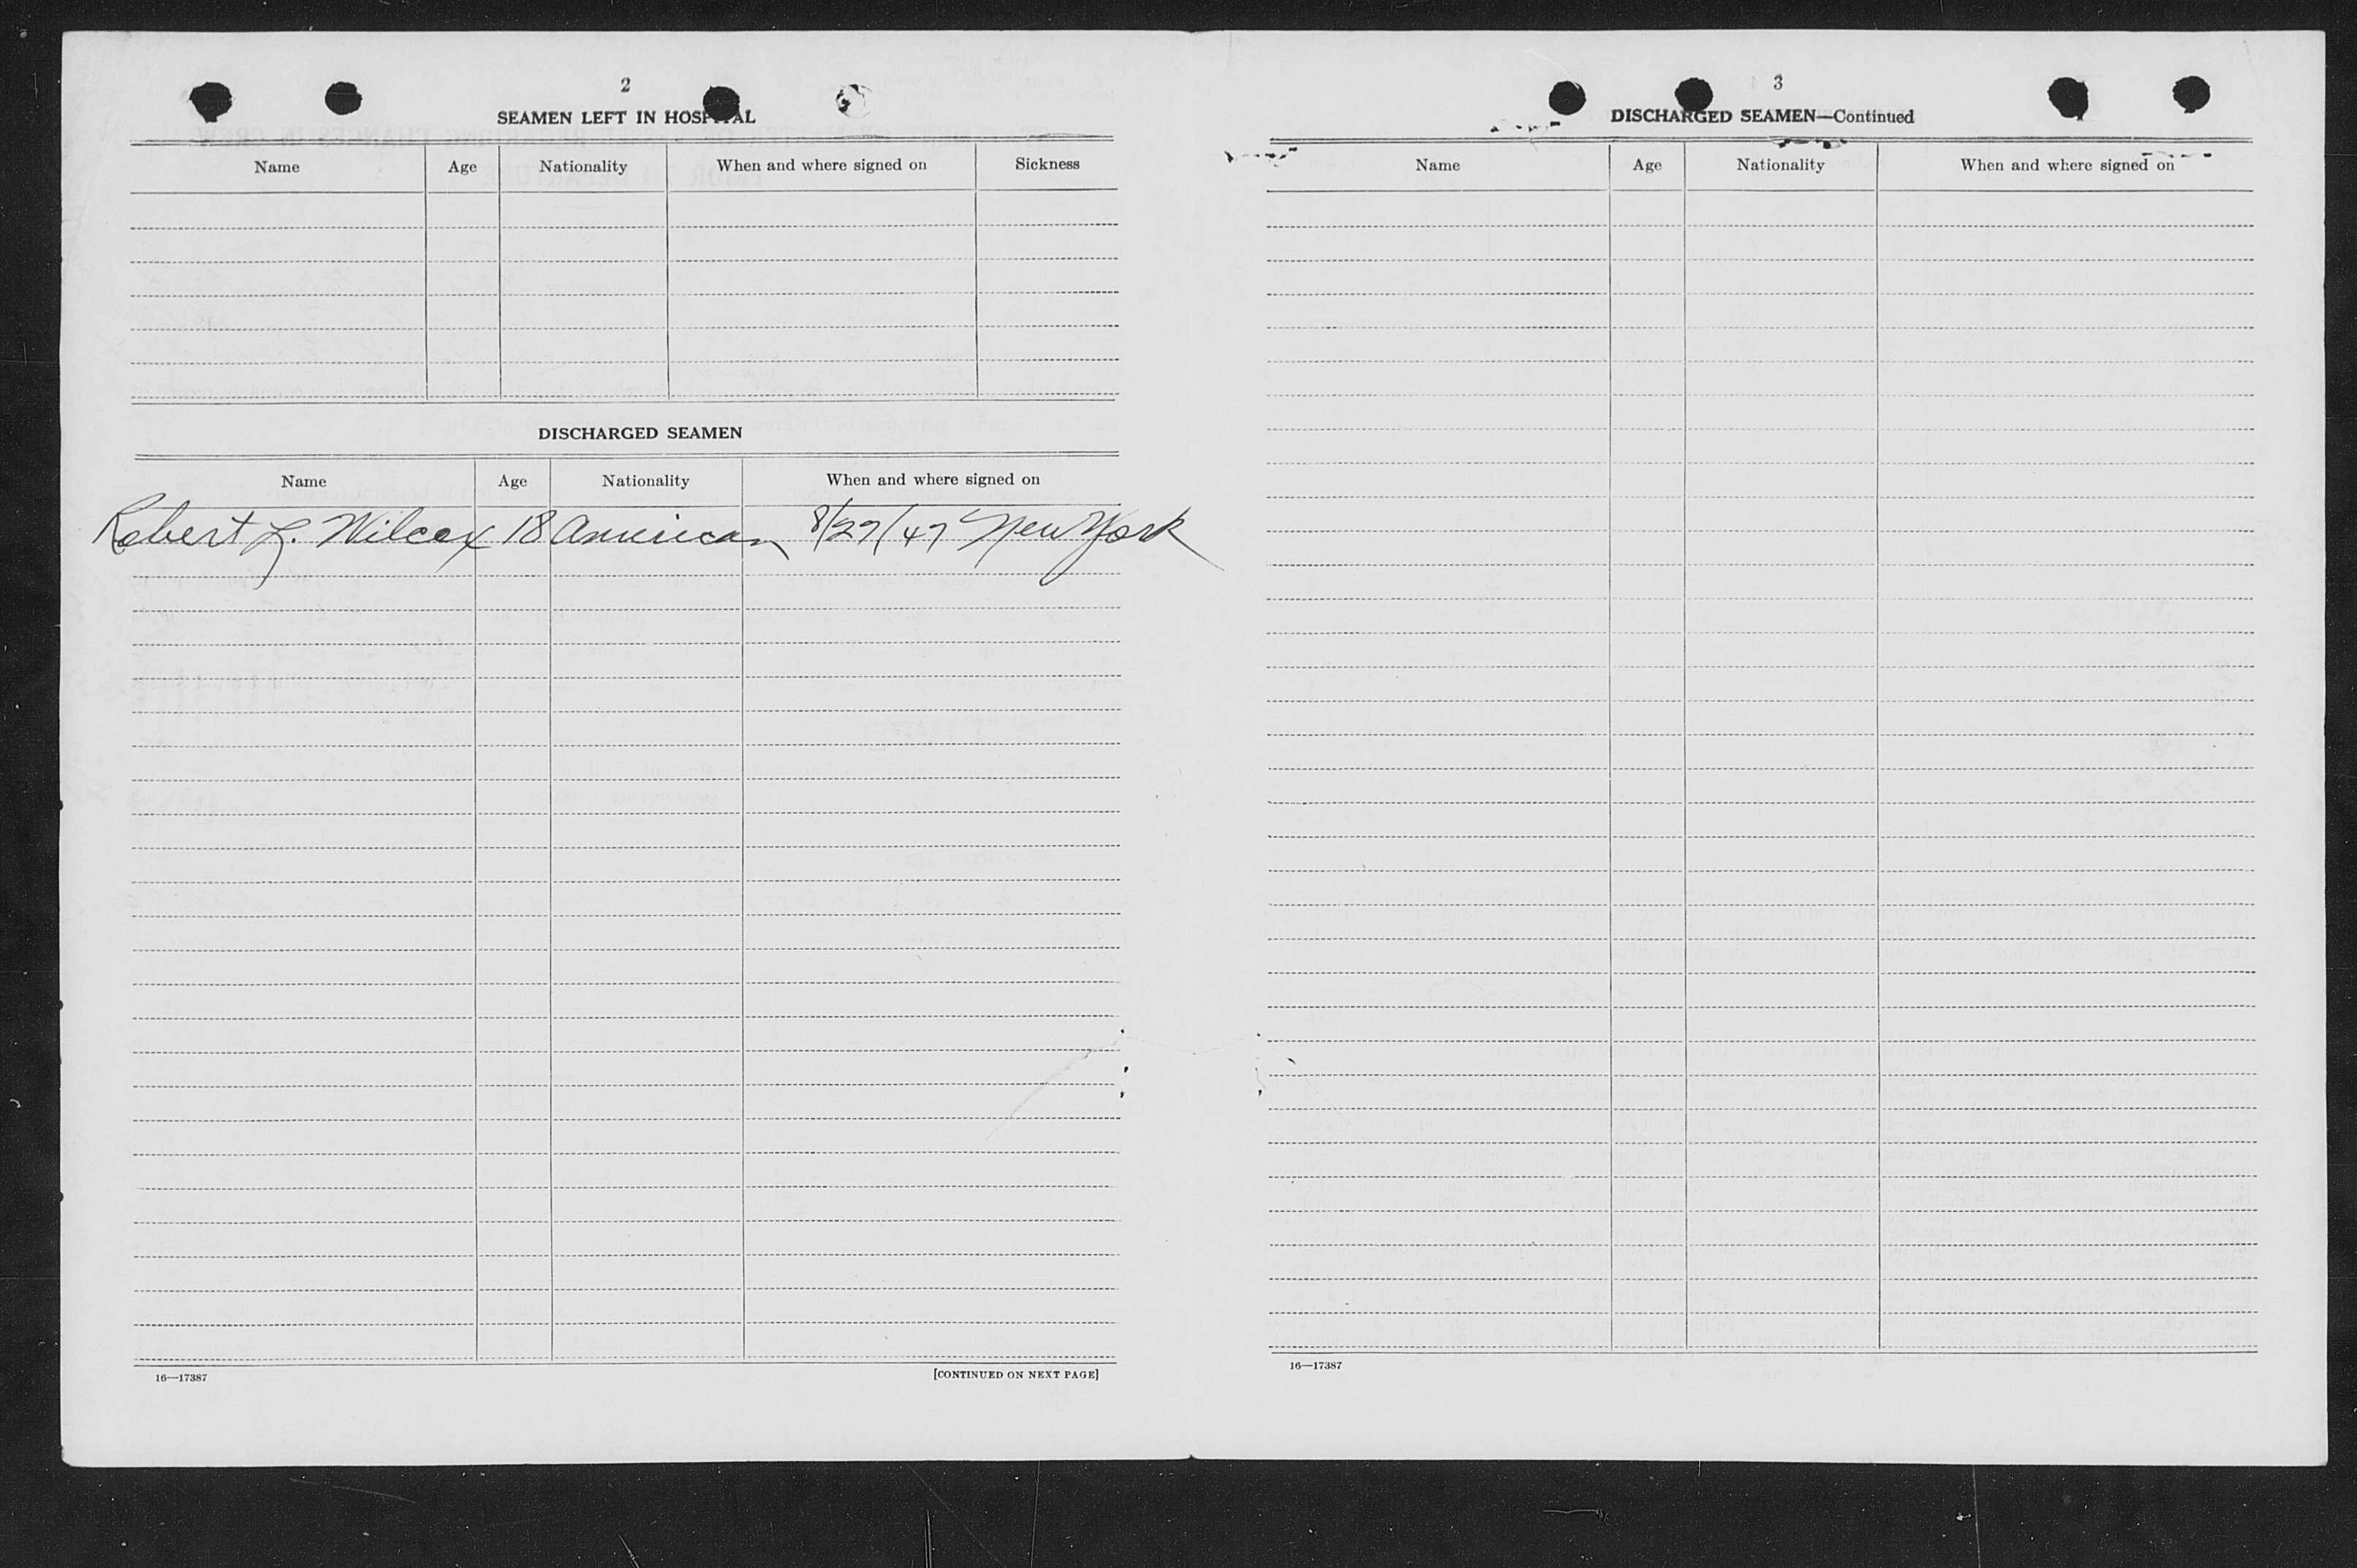 2
SEAMEN LEFT IN HOSPITAL
Name Age Nationality When and where signed on Sickness
DISCHARGED SEAMEN
Name Age Nationality When and where signed on
Robert L. Wilcox 18 American 8/27/47 New York
16—17387 [CONTINUED ON NEXT PAGE]
3
DISCHARGED SEAMEN—Continued
Name Age Nationality When and where signed on
16—17387